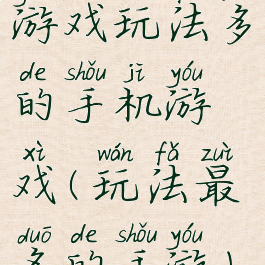 游戏玩法多
de shǒu jī yóu
的手机游
xì wán fǎ zuì
戏(玩法最
duō de shǒu yóu
多的手游)